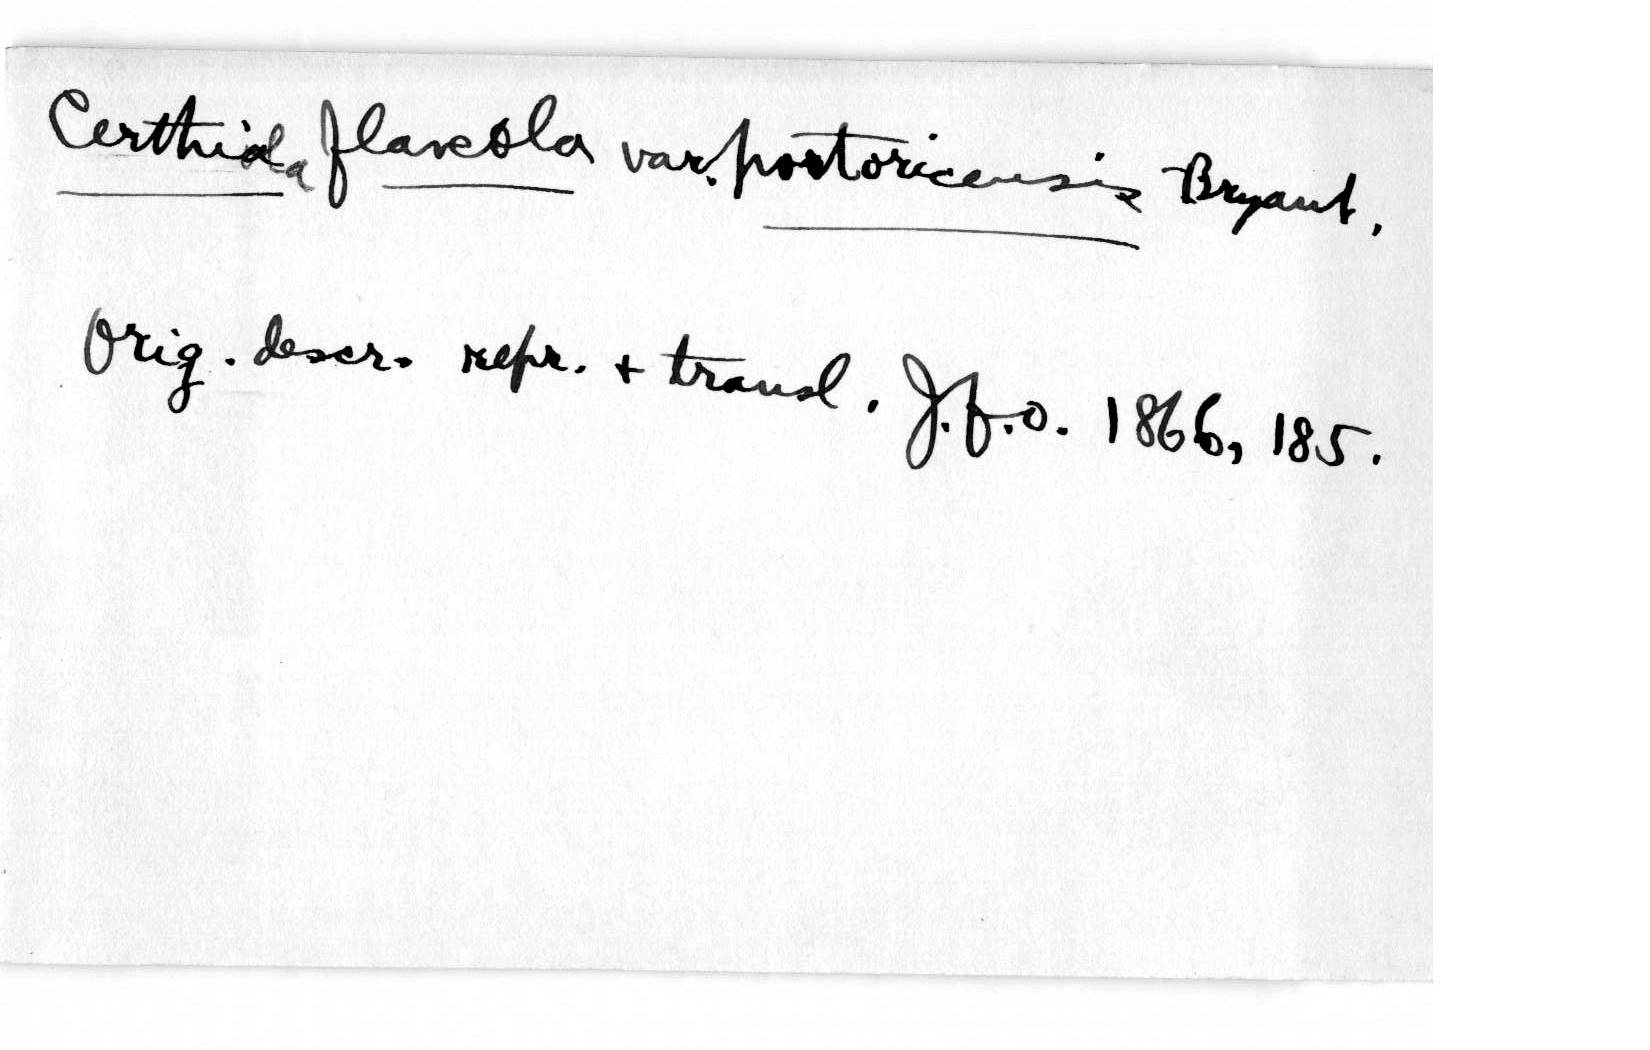 Certhiola flaveola var. portoricensis Bryant.
Orig. descr. repr. + transl. J.f.O. 1866, 185.